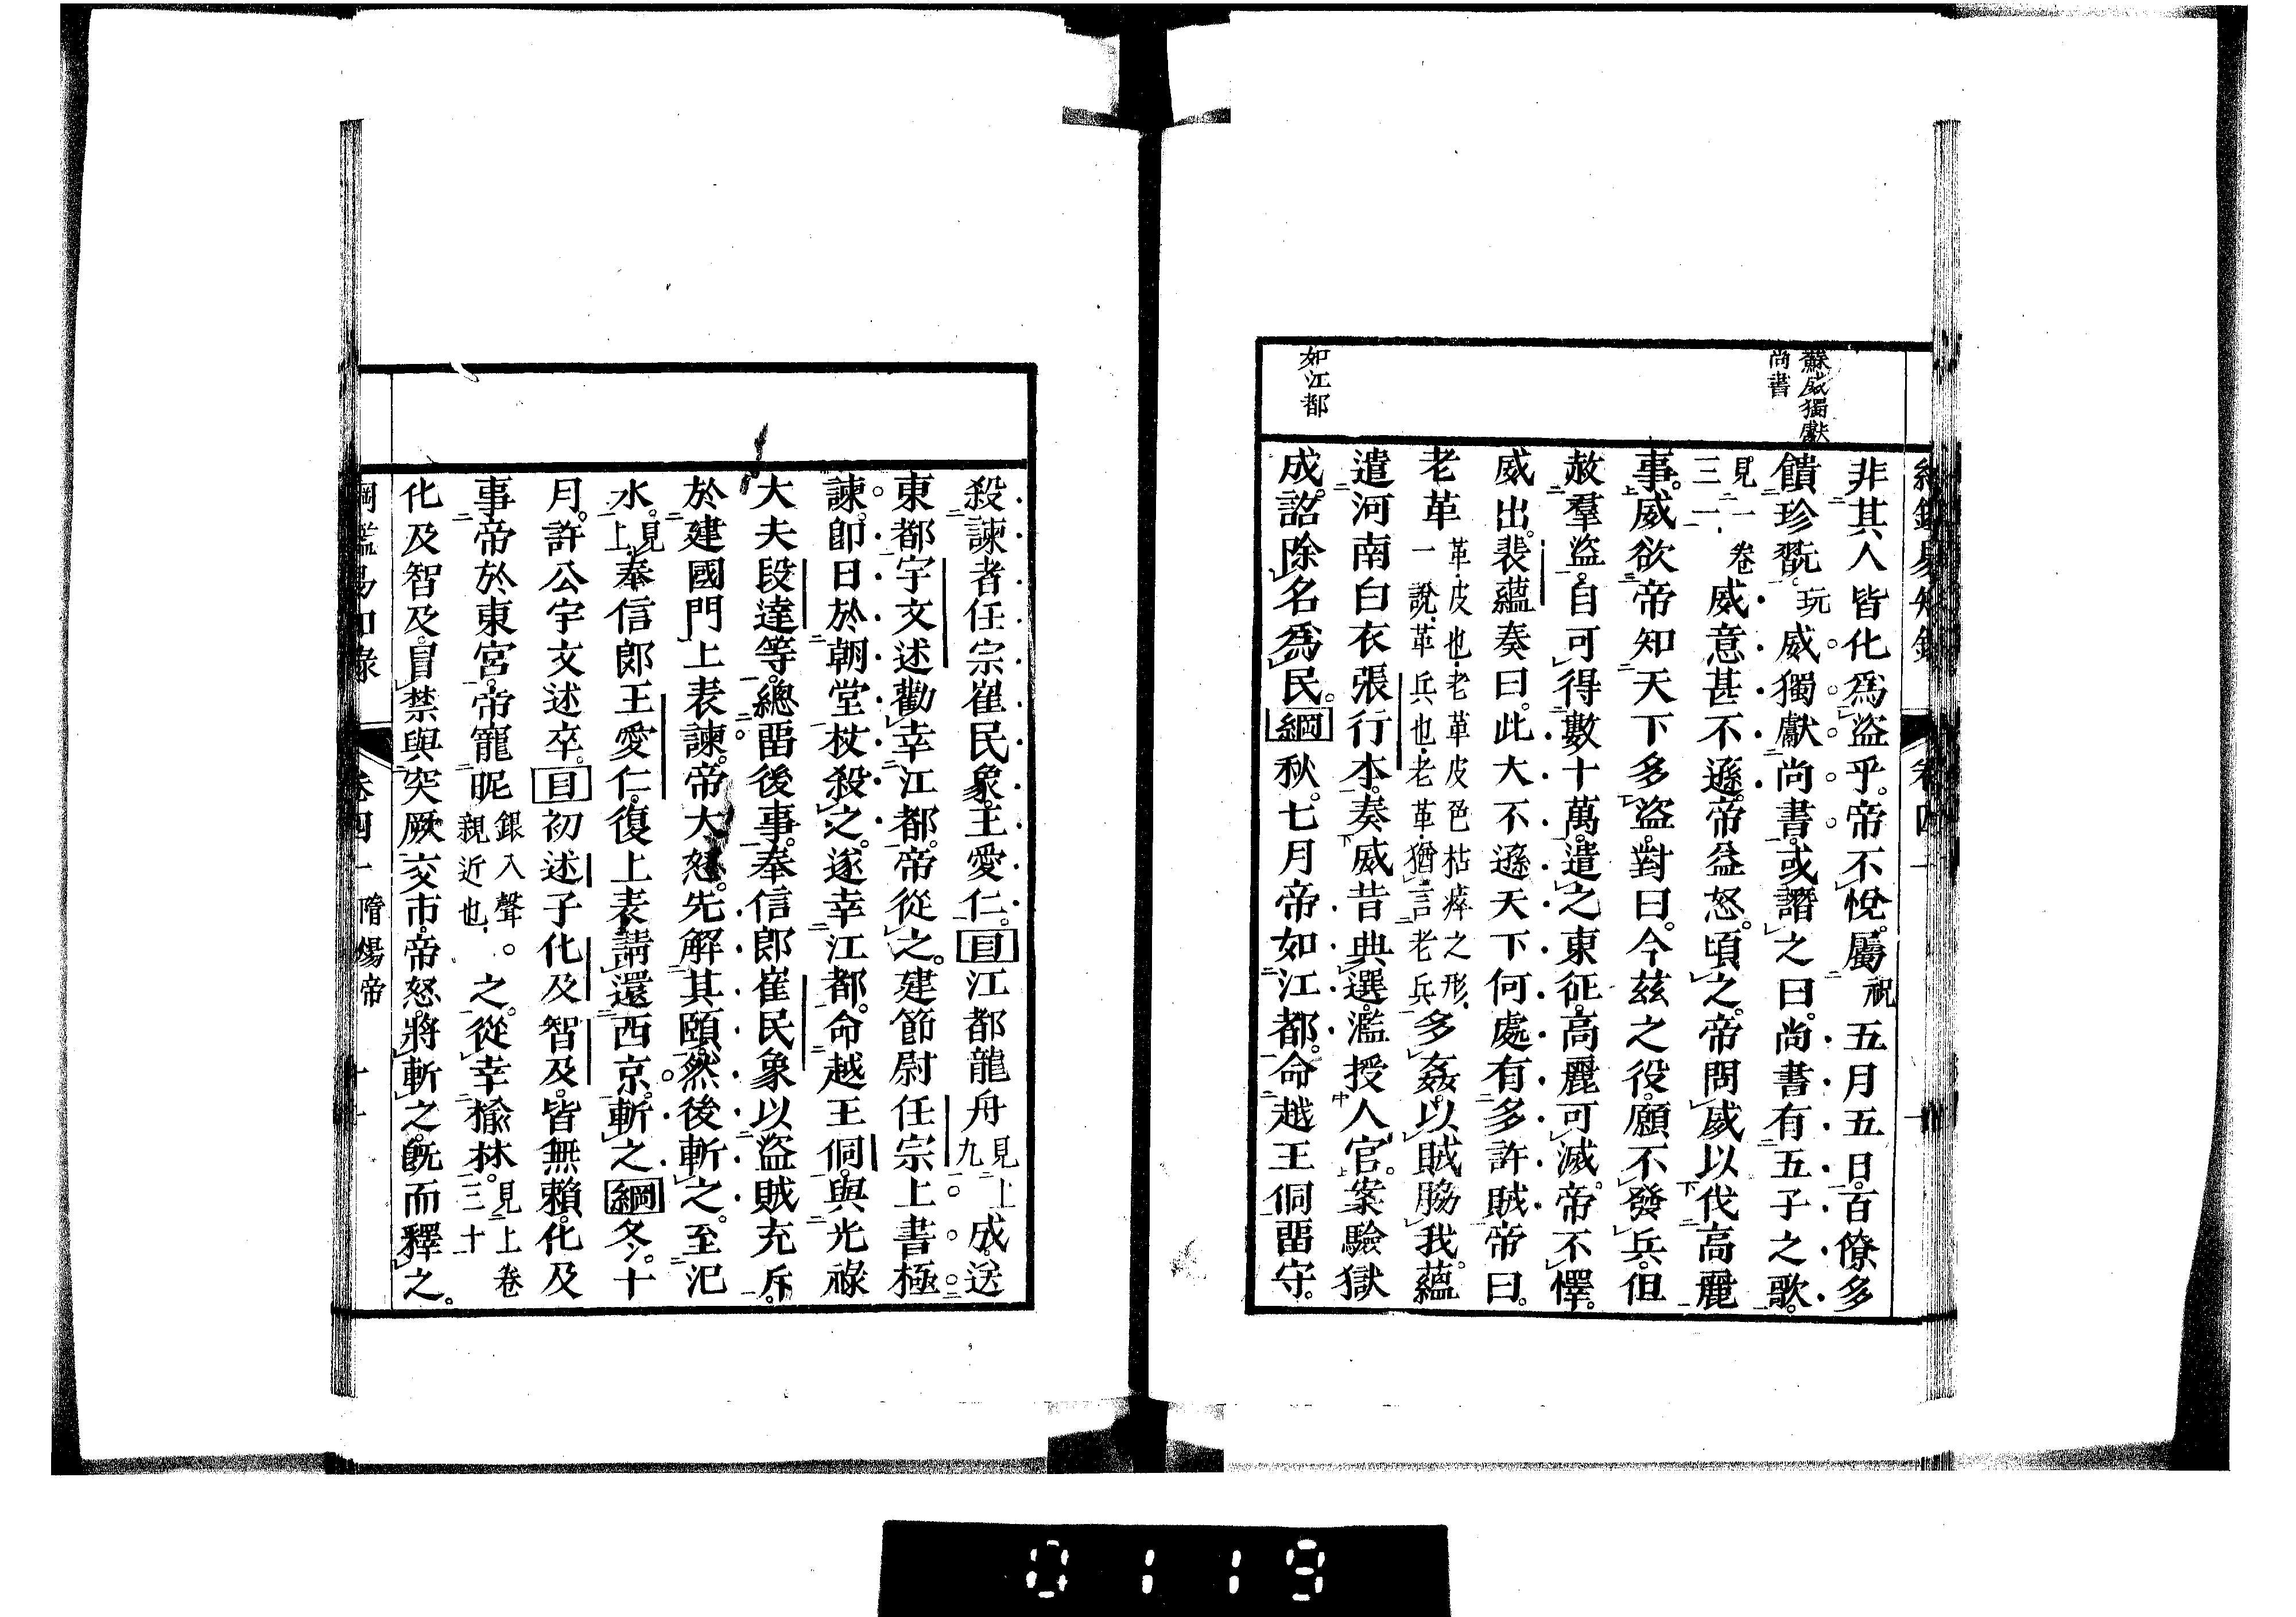 蘇威獨獻
尚書
如江都
非其人皆化爲盜乎。帝不悅。屬祝五月五日。百僚多
饋珍翫。玩威獨獻尚書。或譖之曰。尚書有五子之歌。
見一卷三一威意甚不遜。帝益怒。頃之。帝問威以伐高麗
事。威欲帝知天下多盜。對曰。今茲之役。願不發兵。但
赦羣盜。自可得數十萬。遣之東征。高麗可滅。帝不懌。
威出。裴蘊奏曰。此大不遜。天下何處有多許賊。帝曰。
老革革皮也老革皮色枯瘁之形一說革兵也老革猶言老兵多姦。以賊脇我。蘊
遣河南白衣張行本。奏威昔典選。濫授人官。案驗獄
成。詔除名爲民。綱秋。七月帝如江都。命越王侗畱守。
殺諫者任宗崔民象。王愛仁。目江都龍舟見上九成。送
東都宇文述勸幸江都。帝從之。建節尉任宗上書極
諫。卽日於朝堂杖殺之。遂幸江都。命越王侗。與光祿
大夫段達等。總畱後事。奉信郎崔民象以盜賊充斥。
於建國門上表諫。帝大怒。先解其頤。然後斬之。至汜
水。見上奉信郎王愛仁。復上表請還西京。斬之綱冬。十
月。許公宇文述卒。目初述子化及智及。皆無賴。化及
事帝於東宮。帝寵昵銀入聲。親近也之。從幸榆林。見上卷三十
化及智及。冒禁與突厥交市。帝怒。將斬之。旣而釋之。
綱鑑易知錄 卷四一 隋煬帝